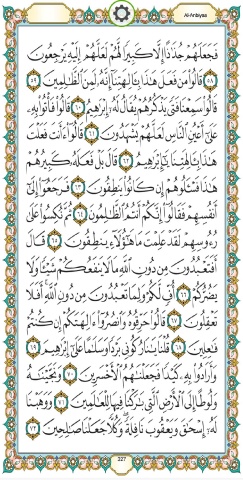 Al-Anbiyaa
فَجَعَلَهُمْ جُذَٰذًا إِلَّا كَبِيرًا لَّهُمْ لَعَلَّهُمْ إِلَيْهِ يَرْجِعُونَ
٥٨ قَالُوا۟ مَن فَعَلَ هَٰذَا بِـَٔالِهَتِنَآ إِنَّهُۥ لَمِنَ ٱلظَّٰلِمِينَ ٥٩
قَالُوا۟ سَمِعْنَا فَتًى يَذْكُرُهُمْ يُقَالُ لَهُۥٓ إِبْرَٰهِيمُ ٦٠ قَالُوا۟ فَأْتُوا۟ بِهِۦ
عَلَىٰٓ أَعْيُنِ ٱلنَّاسِ لَعَلَّهُمْ يَشْهَدُونَ ٦١ قَالُوٓا۟ ءَأَنتَ فَعَلْتَ
هَٰذَا بِـَٔالِهَتِنَا يَٰٓإِبْرَٰهِيمُ ٦٢ قَالَ بَلْ فَعَلَهُۥ كَبِيرُهُمْ
هَٰذَا فَسْـَٔلُوهُمْ إِن كَانُوا۟ يَنطِقُونَ ٦٣ فَرَجَعُوٓا۟ إِلَىٰٓ
أَنفُسِهِمْ فَقَالُوٓا۟ إِنَّكُمْ أَنتُمُ ٱلظَّٰلِمُونَ ٦٤ ثُمَّ نُكِسُوا۟ عَلَىٰ
رُءُوسِهِمْ لَقَدْ عَلِمْتَ مَا هَٰٓؤُلَآءِ يَنطِقُونَ ٦٥ قَالَ
أَفَتَعْبُدُونَ مِن دُونِ ٱللَّهِ مَا لَا يَنفَعُكُمْ شَيْـًٔا وَلَا
يَضُرُّكُمْ ٦٦ أُفٍّ لَّكُمْ وَلِمَا تَعْبُدُونَ مِن دُونِ ٱللَّهِ أَفَلَا
تَعْقِلُونَ ٦٧ قَالُوا۟ حَرِّقُوهُ وَٱنصُرُوٓا۟ ءَالِهَتَكُمْ إِن كُنتُمْ
فَٰعِلِينَ ٦٨ قُلْنَا يَٰنَارُ كُونِى بَرْدًا وَسَلَٰمًا عَلَىٰٓ إِبْرَٰهِيمَ ٦٩
وَأَرَادُوا۟ بِهِۦ كَيْدًا فَجَعَلْنَٰهُمُ ٱلْأَخْسَرِينَ ٧٠ وَنَجَّيْنَٰهُ
وَلُوطًا إِلَى ٱلْأَرْضِ ٱلَّتِى بَٰرَكْنَا فِيهَا لِلْعَٰلَمِينَ ٧١ وَوَهَبْنَا
لَهُۥٓ إِسْحَٰقَ وَيَعْقُوبَ نَافِلَةً وَكُلًّا جَعَلْنَا صَٰلِحِينَ ٧٢
327